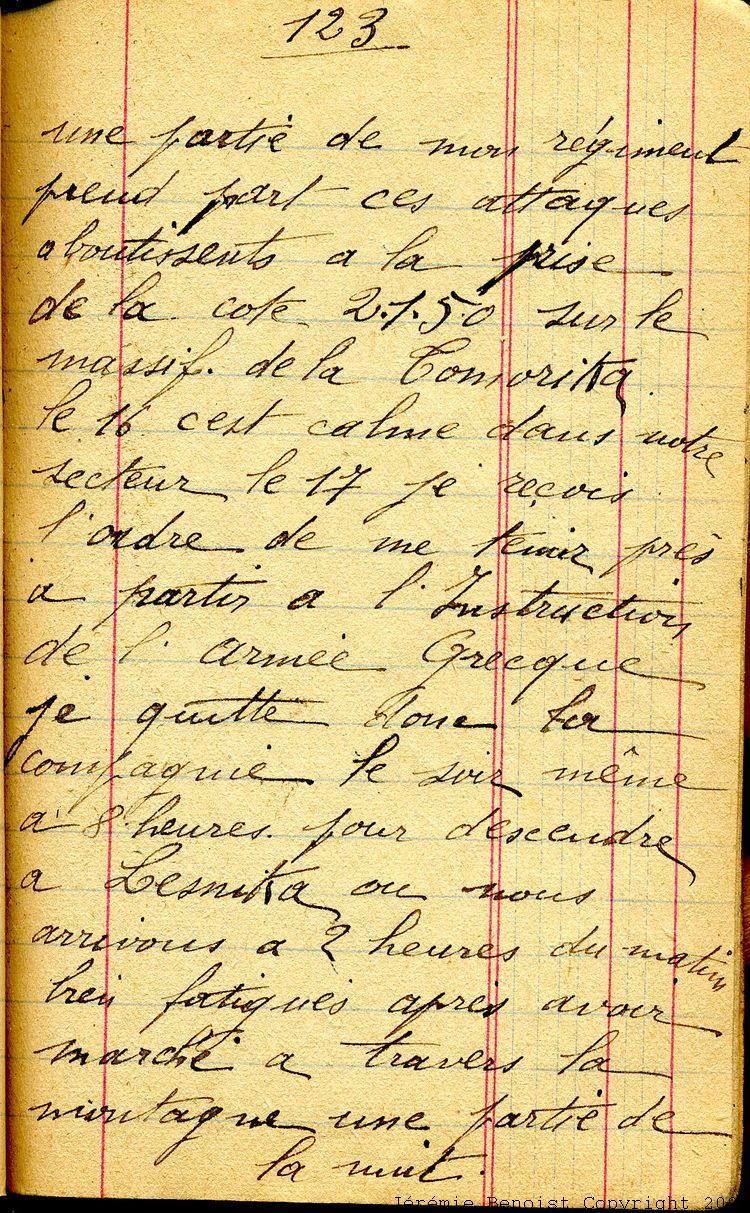 123
une partie de mon régiment
prend part ces attaques
aboutissents a la prise
de la cote 2.1.50 sur le
massif. de la Comorika
le 16 c'est calme dans notre
secteur le 17 je reçois
l'ordre de me tenir près
a partir a l'Instruction
de l'armée Grecque
je quitte donc la
compagnie le soir même
a 8 heures. pour descendre
a Lesnika ou nous
arrivons a 2 heures du matin
bien fatigués après avoir
marché a travers la
montagne une partie de
la nuit.
Jérémie Benoist Copyright